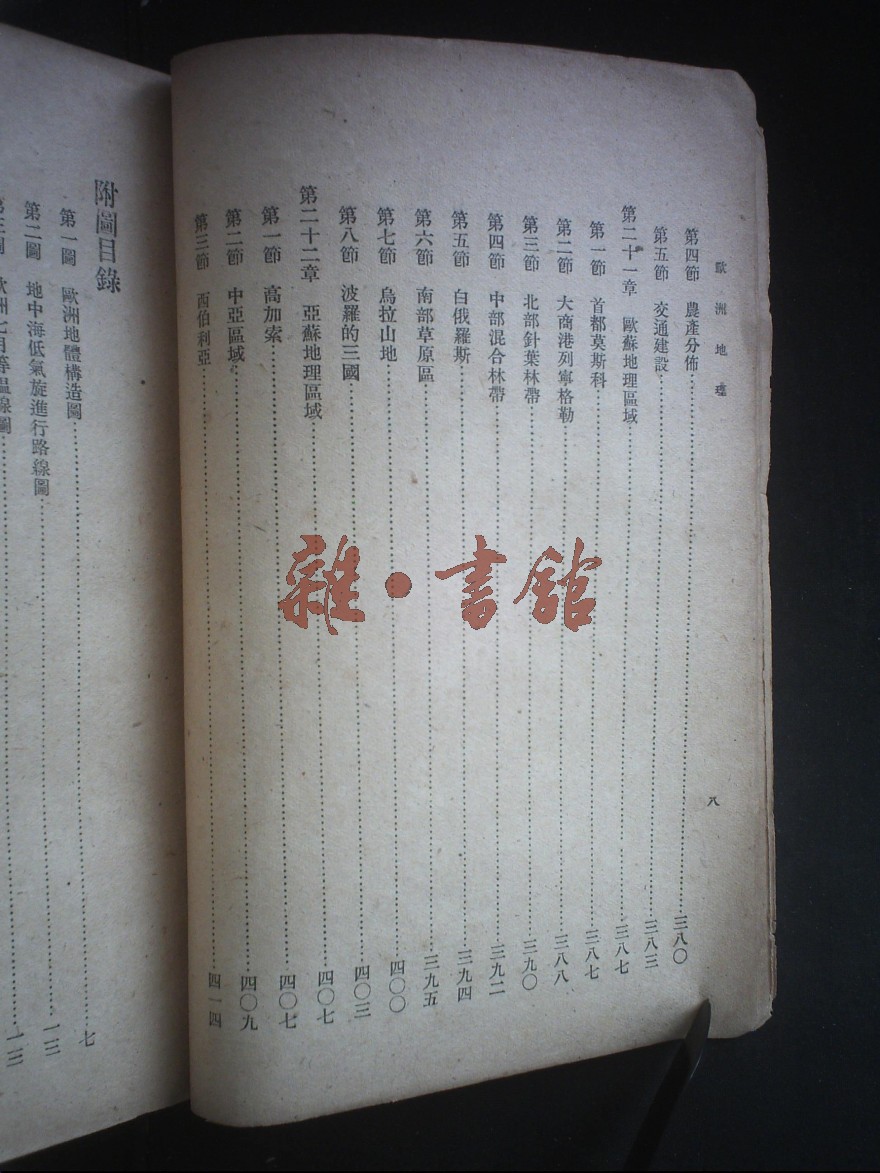 歐洲地理
第四節 農產分佈……三八〇
第五節 交通建設……三八三
第二十一章 歐蘇地理區域……三八七
第一節 首都莫斯科……三八七
第二節 大商港列寧格勒……三八八
第三節 北部針葉林帶……三九〇
第四節 中部混合林帶……三九二
第五節 白俄羅斯……三九四
第六節 南部草原區……三九五
第七節 烏拉山地……四〇〇
第八節 波羅的三國……四〇三
第二十二章 亞蘇地理區域……四〇七
第一節 高加索……四〇七
第二節 中亞區域……四〇九
第三節 西伯利亞……四一四
八
附圖目錄
第一圖 歐洲地體構造圖……七
第二圖 地中海低氣旋進行路線圖……一三
第三圖 歐洲七月等溫線圖……一三
雜·書館